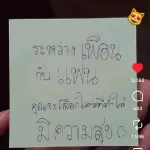 ระหว่างเพื่อน
กับ แฟน
คุณจะเลือกใครที่ทำให้
มีความสุข